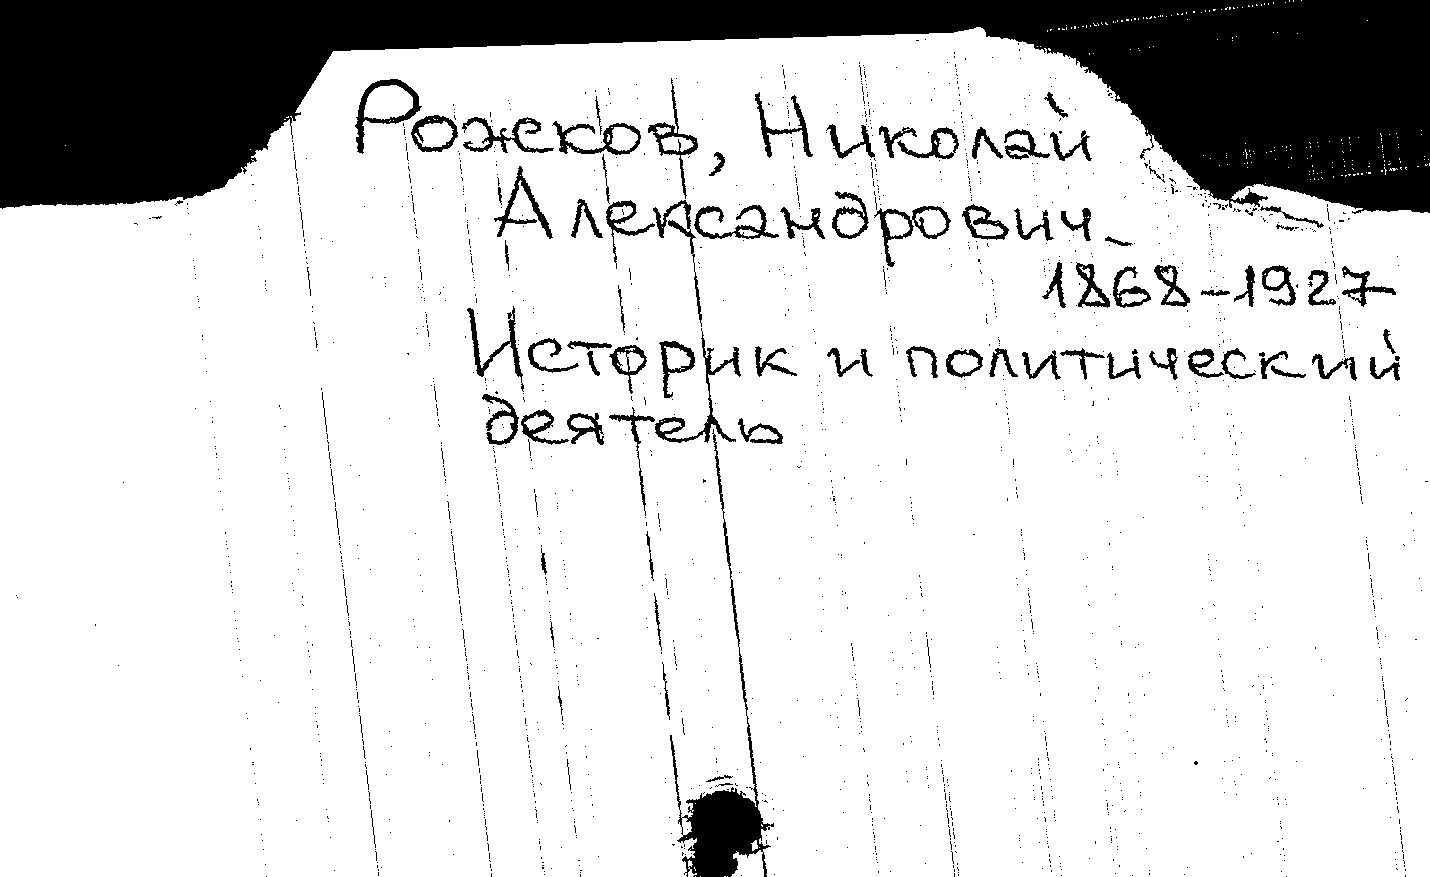 Рожков, Николай
Александрович_
1868-1927
Историк и политический
деятель